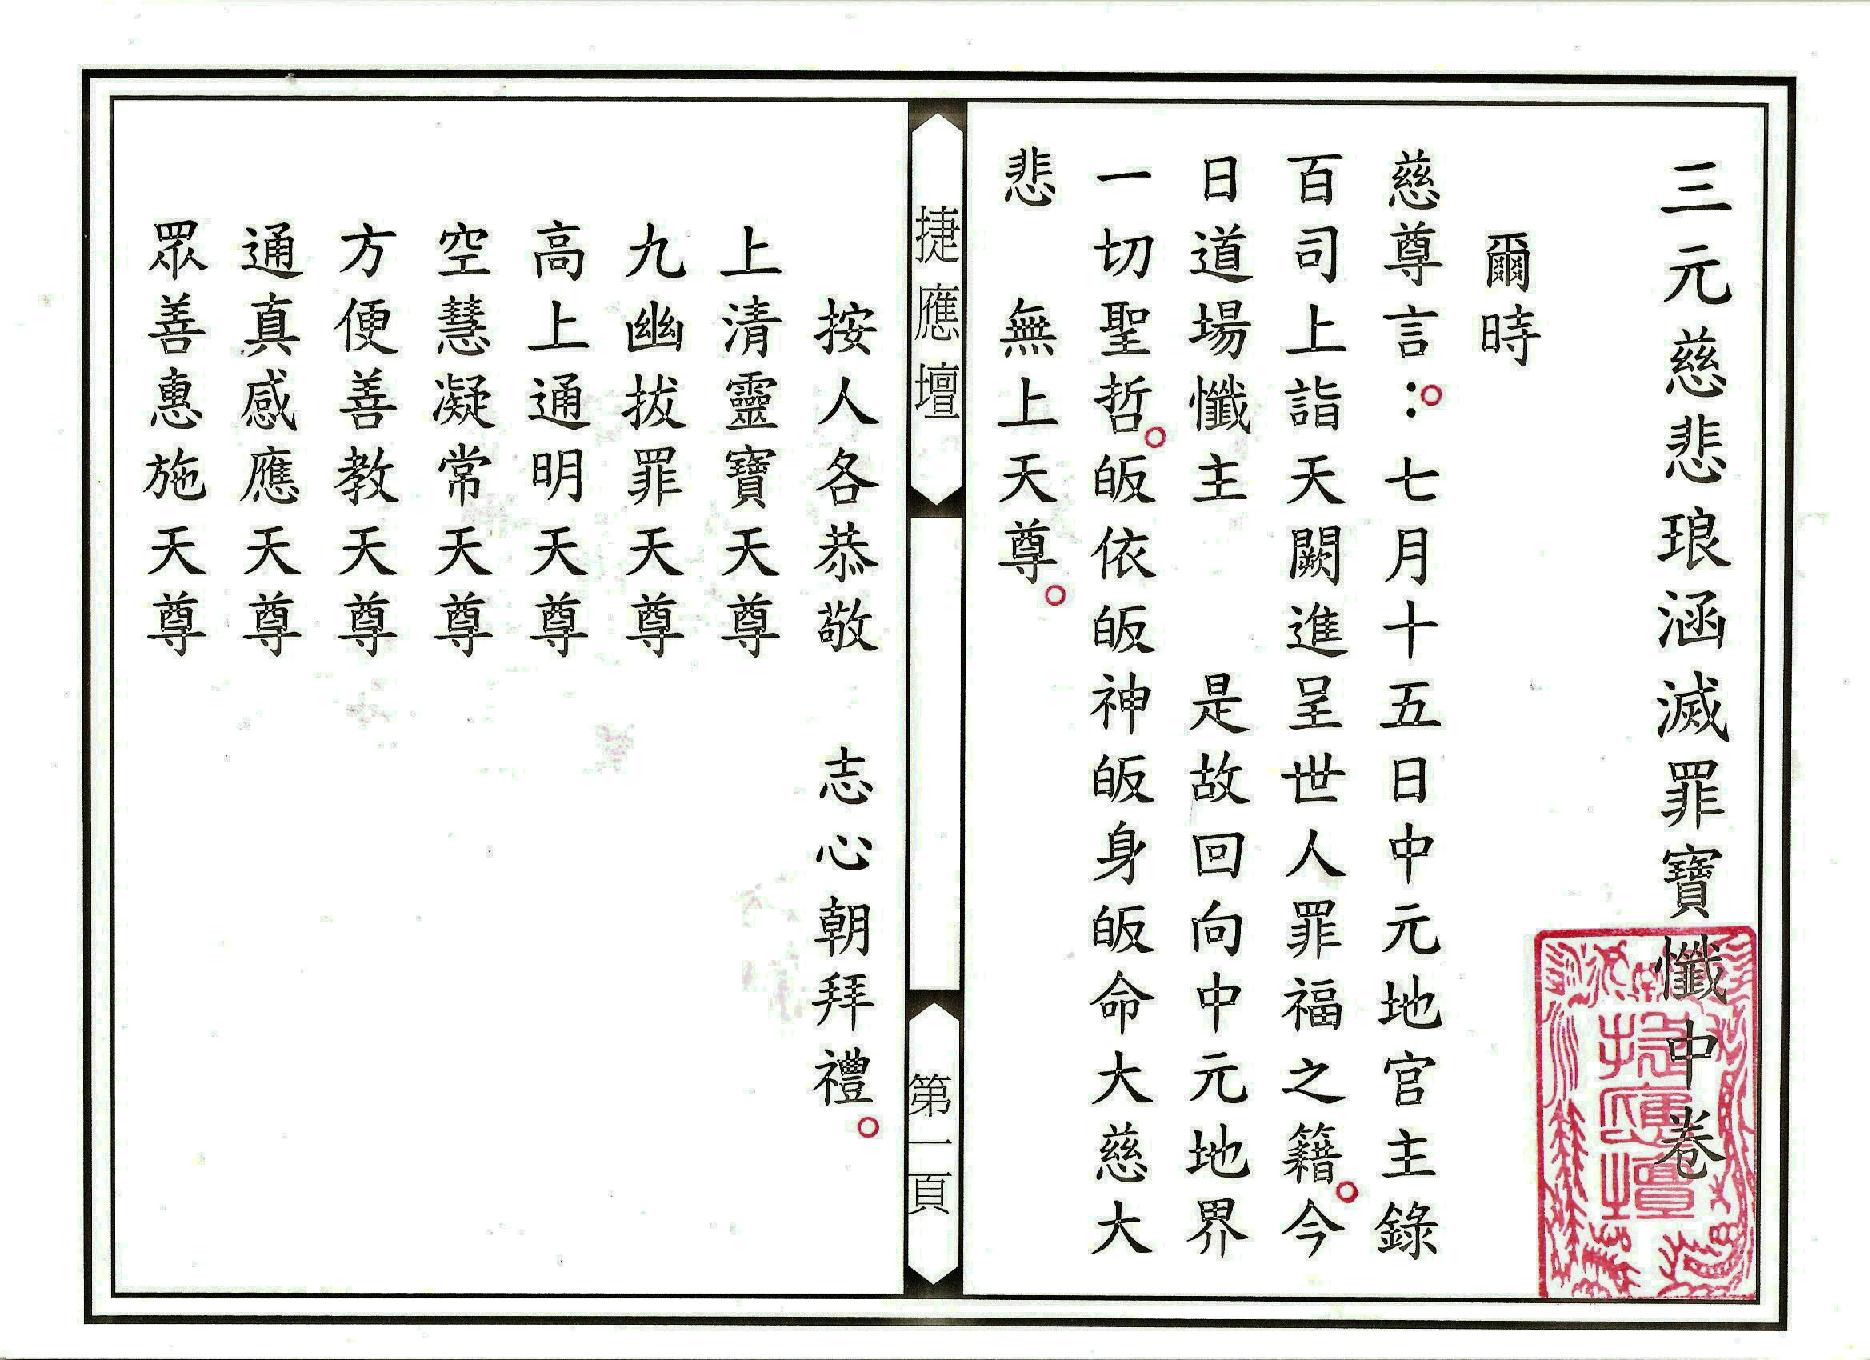 三元慈悲琅涵滅罪寶懺中卷
爾時
慈尊言：七月十五日中元地官主錄
百司上詣天闕進呈世人罪福之籍。今
日道場懺主　是故回向中元地界
一切聖哲。皈依皈神皈身皈命大慈大
悲　無上天尊。
捷應壇
第一頁
按人各恭敬　志心朝拜禮。
上清靈寶天尊
九幽拔罪天尊
高上通明天尊
空慧凝常天尊
方便善教天尊
通真感應天尊
眾善惠施天尊
捷應壇